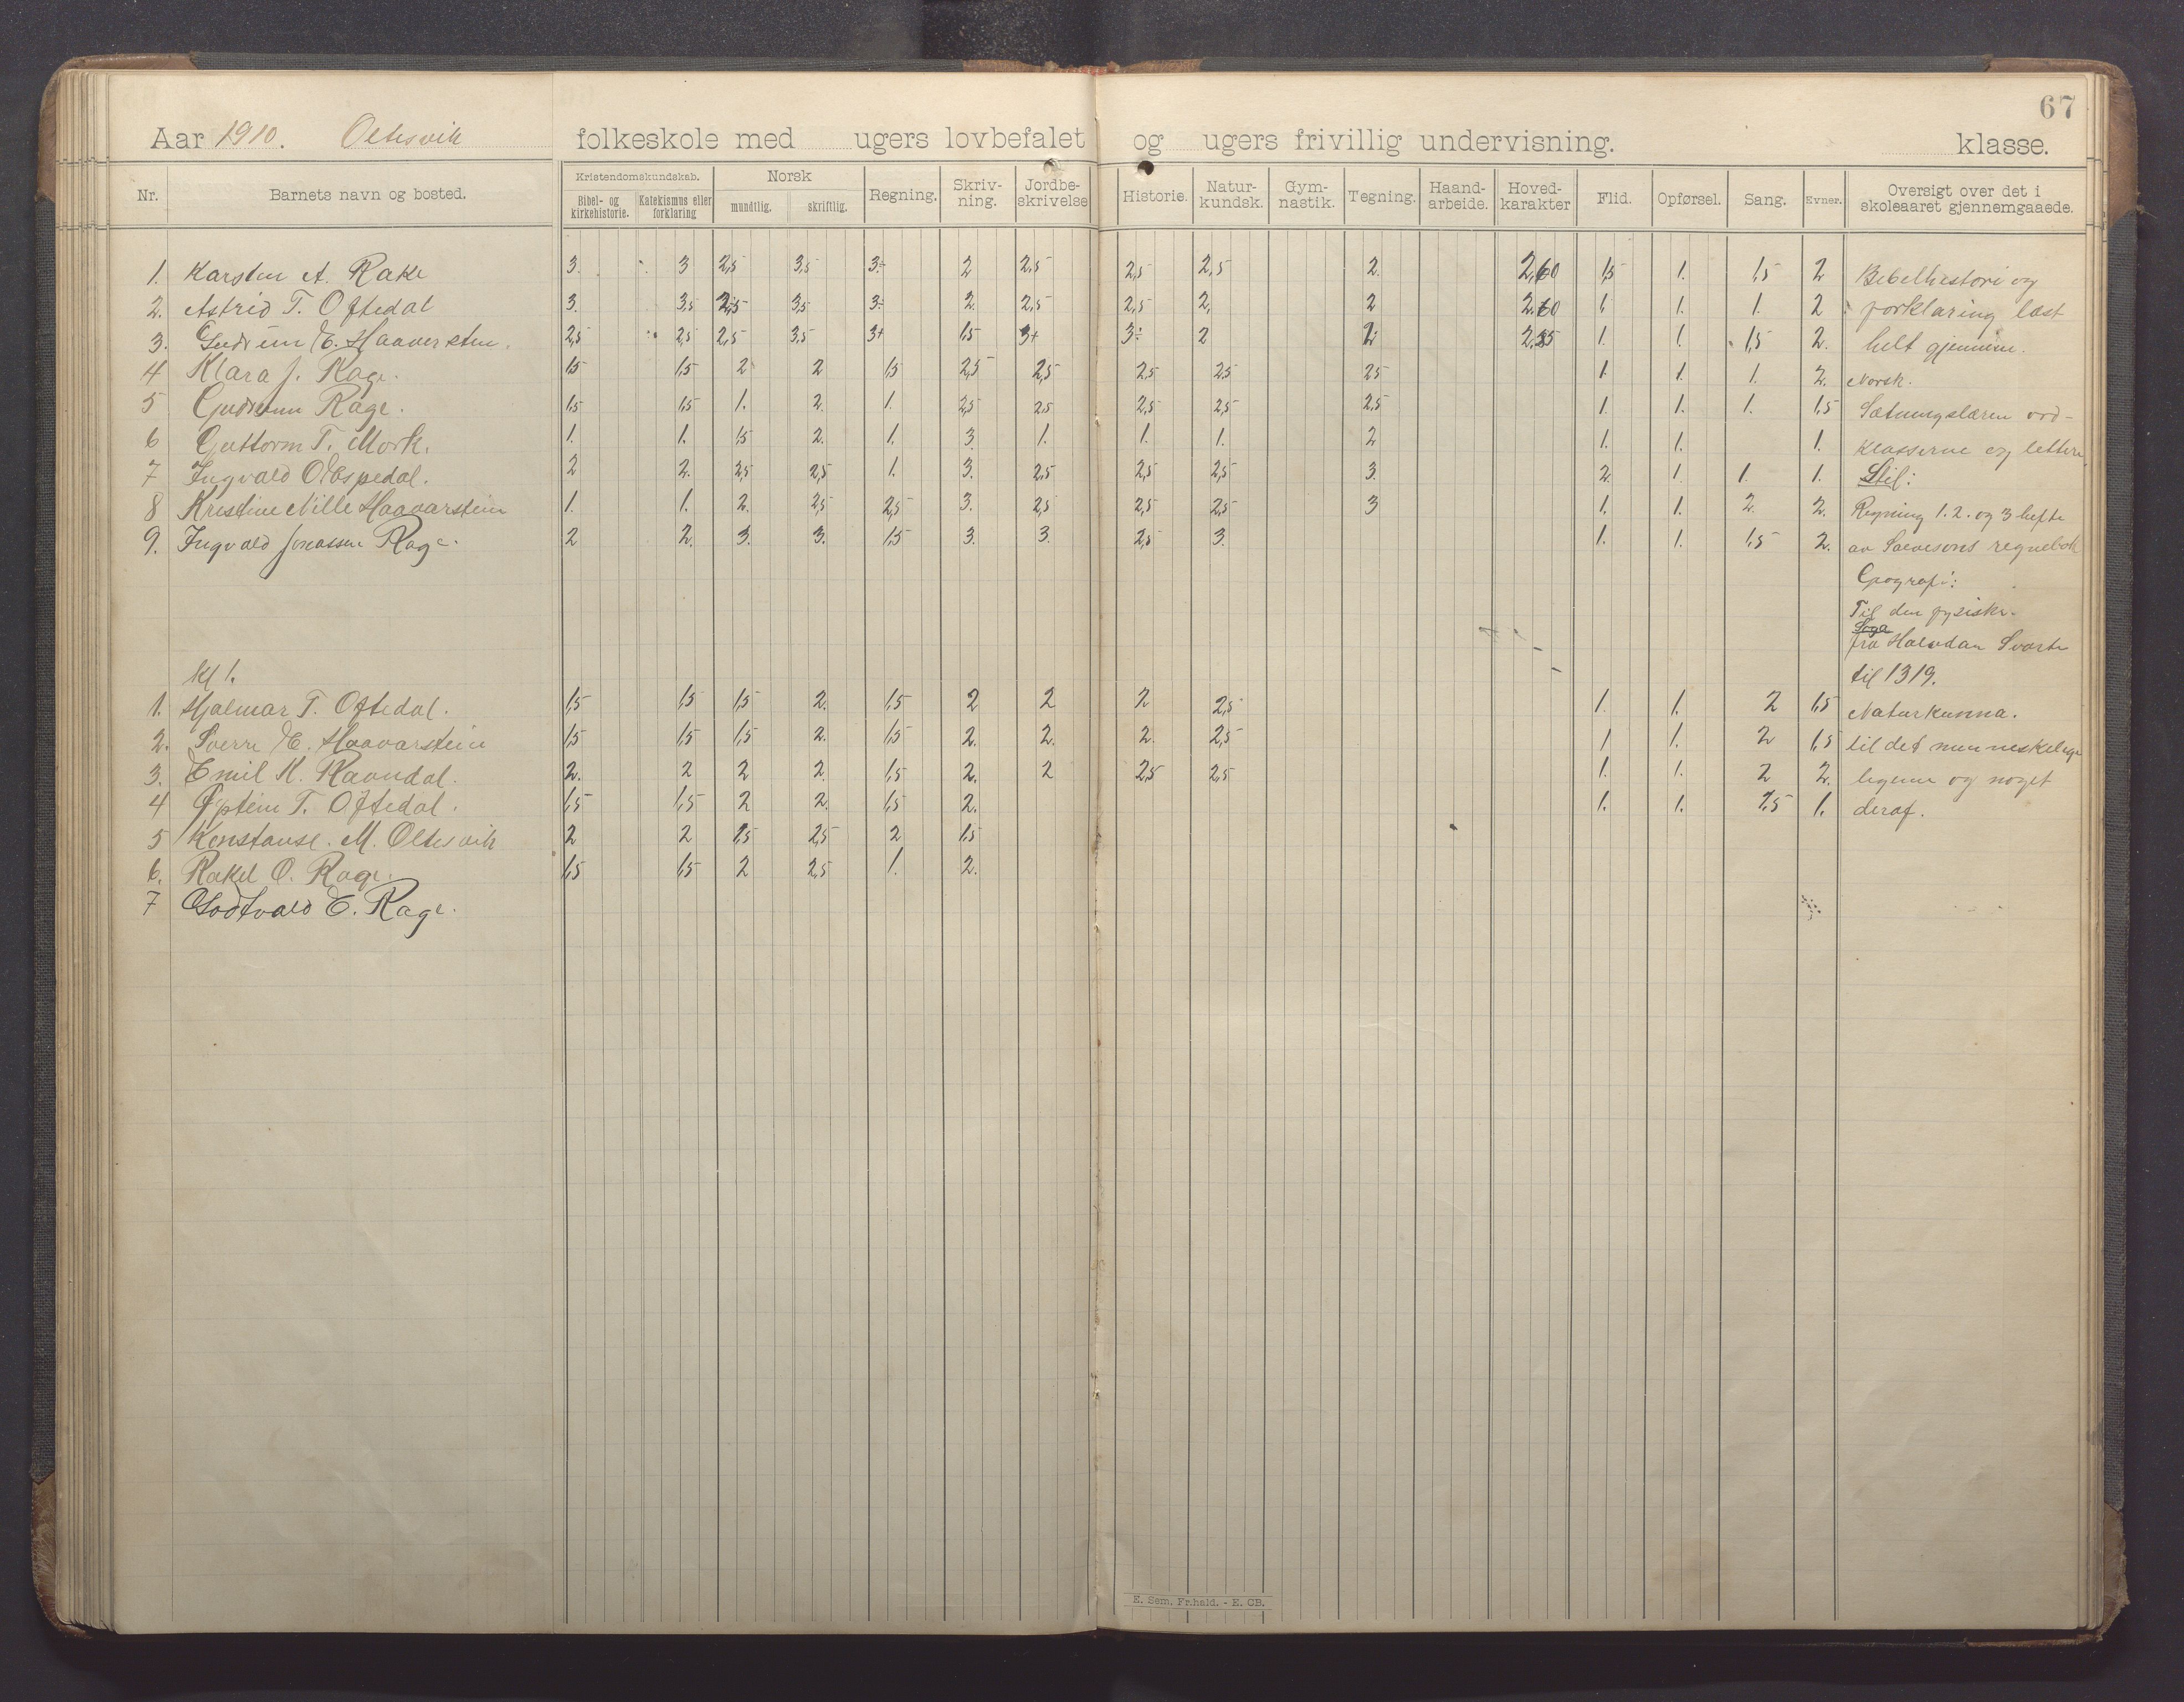 67
Aar 1910. Oltesvik folkeskole med ugers lovbefalet og ugers frivillig undervisning. klasse.
Nr. Barnets navn og bosted. Kristendomskundskab. Bibel- og kirkehistorie. Katekismus eller forklaring Norsk mundtlig. skriftlig. Regning. Skriv-ning. Jordbe-skrivelse Historie. Natur-kundsk. Gym-nastik. Tegning. Haand-arbeide. Hoved-karakter Flid. Opførsel. Sang. Evner. Oversigt over det i skoleaaret gjennemgaaede.
1. Karsten A. Rake 3. 3 2,5 3,5 3÷ 2 2,5 2,5 2,5 2. 2,60 1,5 1. 1,5 2 Bibelhestori og
2. Astrid T. Oftedal 3. 3,5 2,5 3,5 3÷ 2. 2,5 2,5 2, 2 2,60 1. 1. 1. 2 forklaring læst
3. Gudrun E. Haaverstein. 2,5 2,5 2,5 3,5 3+ 1,5 3+ 3÷ 2 2 2,35 1. 1. 1,5 2. helt gjennem.
4 Klara J. Rage. 1,5 1,5 2 2 1,5 2,5 2,5 2,5 2,5 2,5 1. 1. 1. 2. Norsk.
5 Gudrunn Rage. 1,5 1,5 1. 2. 1. 2,5 2,5 2,5 2,5 2,5 1. 1. 1. 1,5 Sætningslæren ord-
6 Guttorm T. Mork. 1. 1. 1,5 2. 1. 3. 1. 1. 1. 2 1. 1. 1. klasserne og lettere
7 Ingvald O. Espedal. 2 2. 2,5 2,5 1. 3. 2,5 2,5 2,5 3. 2. 1. 1. 1. Stil:
8 Kristine Nille Haavarstein 1. 1. 2. 2,5 2,5 3. 2,5 2,5 2,5 3 1. 1. 2. 2. Regning 1. 2. og 3 hefte
9. Ingvald Jonassen Rage. 2 2. 3. 3. 1,5 3. 3. 2,5 3. 1. 1. 1,5 2. av regnebok
Geografi:
Til den fysiske.
Soga
fra Halvdan Svarte
kl 1. til 1319.
1. Hjalmar T. Oftedal. 1,5 1,5 1,5 2. 1,5 2 2 2 2,5 1. 1. 2 1,5 Naturkunna.
2. Sverre E. Haavarstein 1,5 1,5 1,5 2. 1,5 2. 2. 2. 2,5 1 1. 2 1,5 til det menneskelige
3. Emil K. Ravndal. 2. 2 2 2. 1,5 2. 2 2,5 2,5 1. 1. 2 2. legeme og noget
4 Øystein T. Oftedal. 1,5 1,5 2 2. 1,5 2. 1. 1. 1,5 1. deraf.
5 Konstanse. M. Oltesvik 2 2 1,5 2,5 2 1,5
6. Rakel O. Rage. 1,5 1,5 2 2,5 1. 2.
7 Godtvald E. Rage.
E. Sem, Fr.hald. - E. CB.